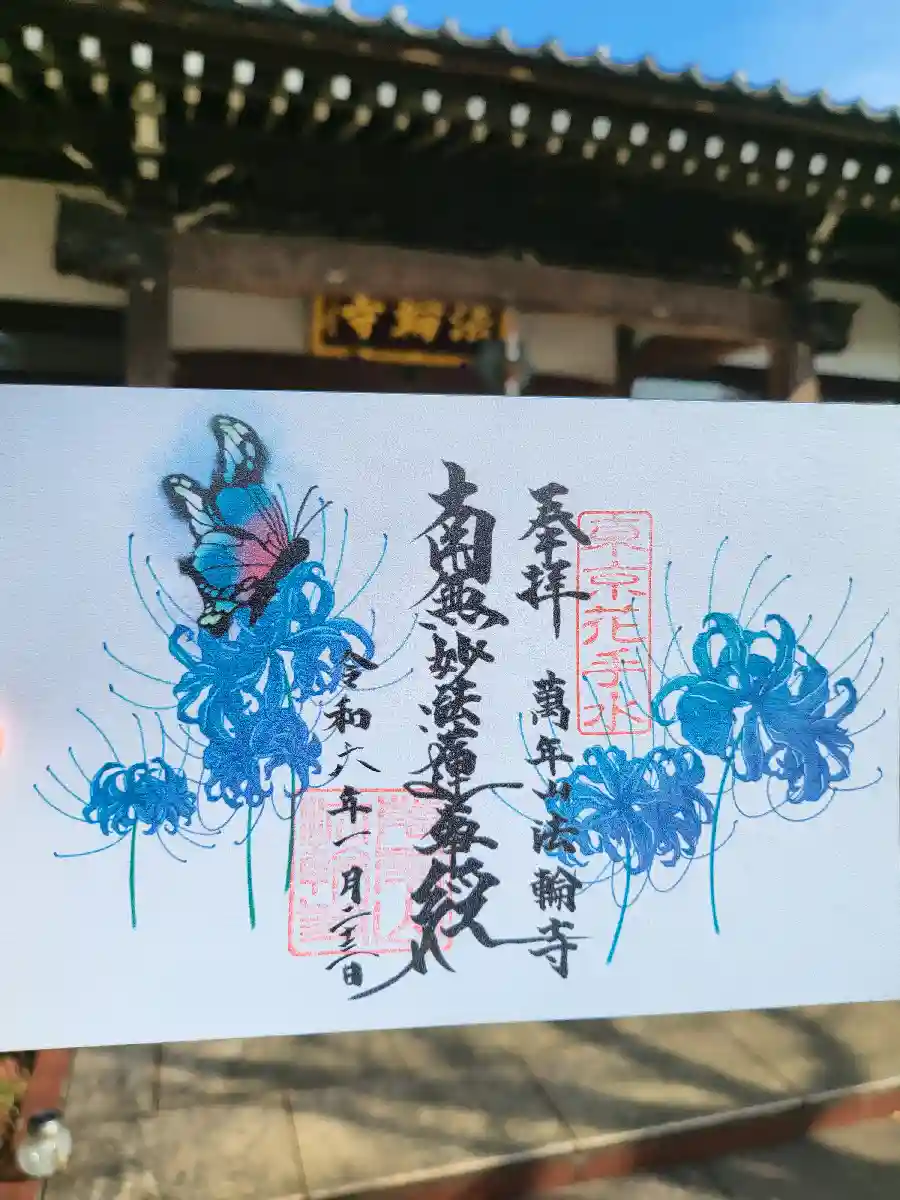 法輪寺
奉拝
東京花手水
萬年山法輪寺
南無妙法蓮華経
令和六年一月二十三日